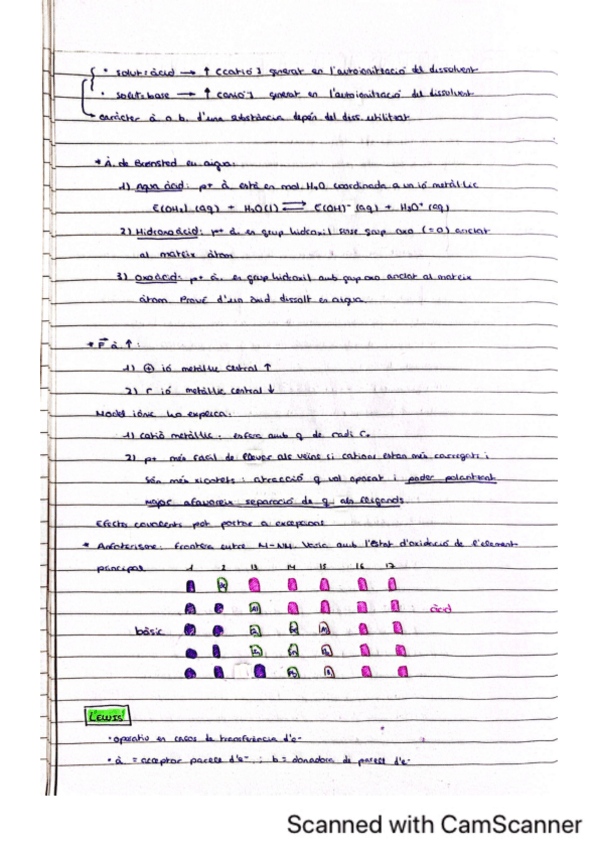 · solut: àcid → ↑ [catió] generat en l'autoionització del dissolvent
· solut: base → ↑ [anió] generat en l'autoionització del dissolvent
caràcter à o b. d'una substància depèn del diss. utilitzat
* À. de Brønsted en aigua:
1) Aqua àcid: p+ à està en mol. H2O coordinada a un ió metàl·lic
E(OH2) (aq) + H2O(l) ⇌ E(OH)- (aq) + H3O+ (aq)
2) Hidroxoàcid: p+ à. en grup hidroxil sense grup oxo (=O) anclat
al mateix àtom
3) Oxoàcid: p+ à. en grup hidroxil amb grup oxo anclat al mateix
àtom. Prové d'un àcid dissolt en aigua
* F à ↑:
1) ⊕ ió metàl·lic central ↑
2) r ió metàl·lic central ↓
Model iònic ho explica:
1) catió metàl·lic: esfera amb q de radi
2) p+ més fàcil de llevar als veïns si cations estan més carregats i
són més xicotets: atracció q val apocat i poder polaritzant
major afavoreix separació de q als lligands.
Efectes covalents pot portar a excepcions
* Amfoterisme: Frontera entre M-NM. Varia amb l'Estat d'oxidació de l'element
principal
1 2 13 14 15 16 17
àcid
bàsic
LEWIS
· operatio en casos de transferència d'e-
· à. = acceptor parells d'e- ; b = donadora de parells d'e-
Scanned with CamScanner